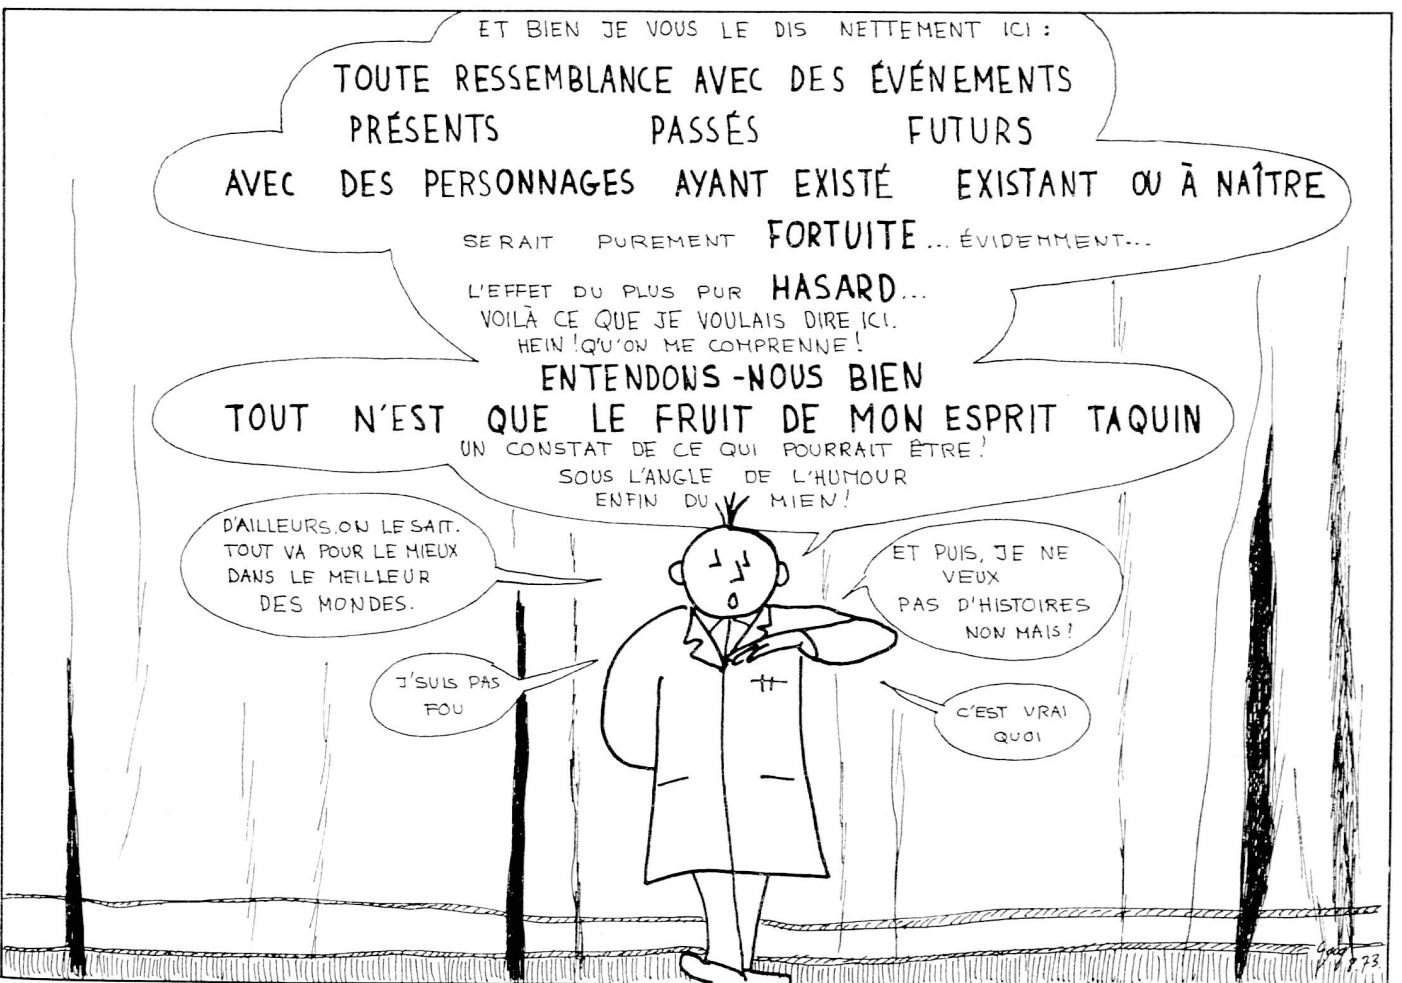 ET BIEN JE VOUS LE DIS NETTEMENT ICI :
TOUTE RESSEMBLANCE AVEC DES ÉVÉNEMENTS
PRÉSENTS PASSÉS FUTURS
AVEC DES PERSONNAGES AYANT EXISTÉ EXISTANT OU À NAÎTRE
SERAIT PUREMENT FORTUITE... ÉVIDEMMENT...
L'EFFET DU PLUS PUR HASARD...
VOILÀ CE QUE JE VOULAIS DIRE ICI.
HEIN ! QU'ON ME COMPRENNE !
ENTENDONS-NOUS BIEN
TOUT N'EST QUE LE FRUIT DE MON ESPRIT TAQUIN
UN CONSTAT DE CE QUI POURRAIT ÊTRE !
SOUS L'ANGLE DE L'HUMOUR
ENFIN DU MIEN !
D'AILLEURS, ON LE SAIT.
TOUT VA POUR LE MIEUX
DANS LE MEILLEUR
DES MONDES.
ET PUIS, JE NE
VEUX
PAS D'HISTOIRES
NON MAIS !
J'SUIS PAS
FOU
C'EST VRAI
QUOI
8.73.